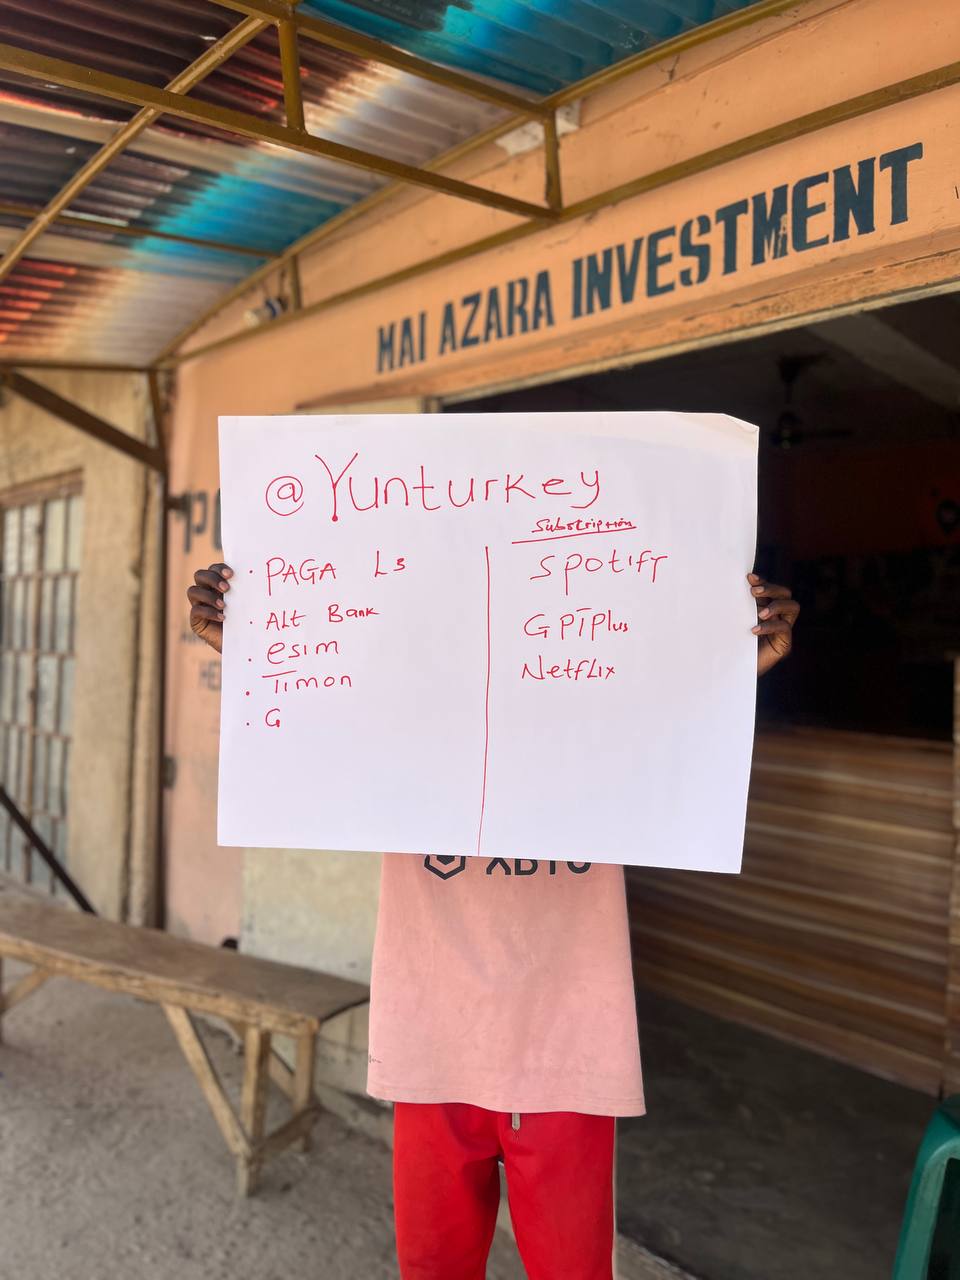 MAI AZARA INVESTMENT
@Yunturkey
PAGA L3
ALt Bank
esim
Timon
G
Subscription
Spotify
GPTPlus
Netflix
XBTO